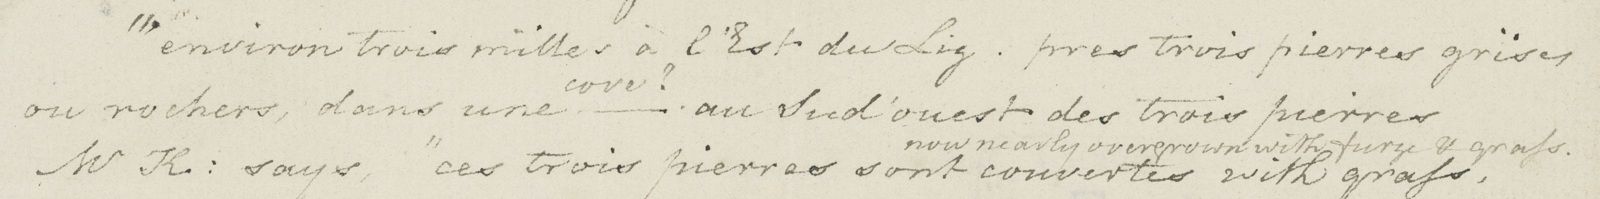 "environ trois milles à l'Est du Liz. pres trois pierres grises
cove?
ou rochers, dans une —— au Sud'ouest des trois pierres
now nearly overgrown with furze & grass.
Mr K: says, "ces trois pierres sont couvertes with grass.